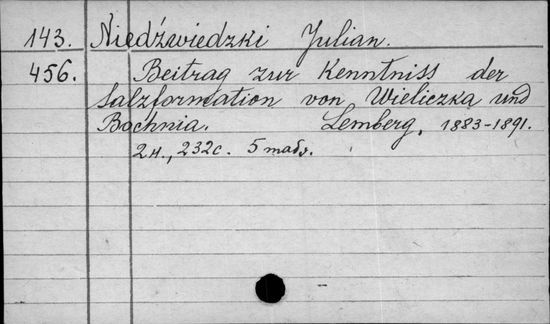 143. Niedźwiedzki Julian.
456. Beitrag zur Kenntniss der
Salzformation von Wieliczka und
Bochnia. Lemberg, 1883-1891.
2н., 232с. 5 табл.